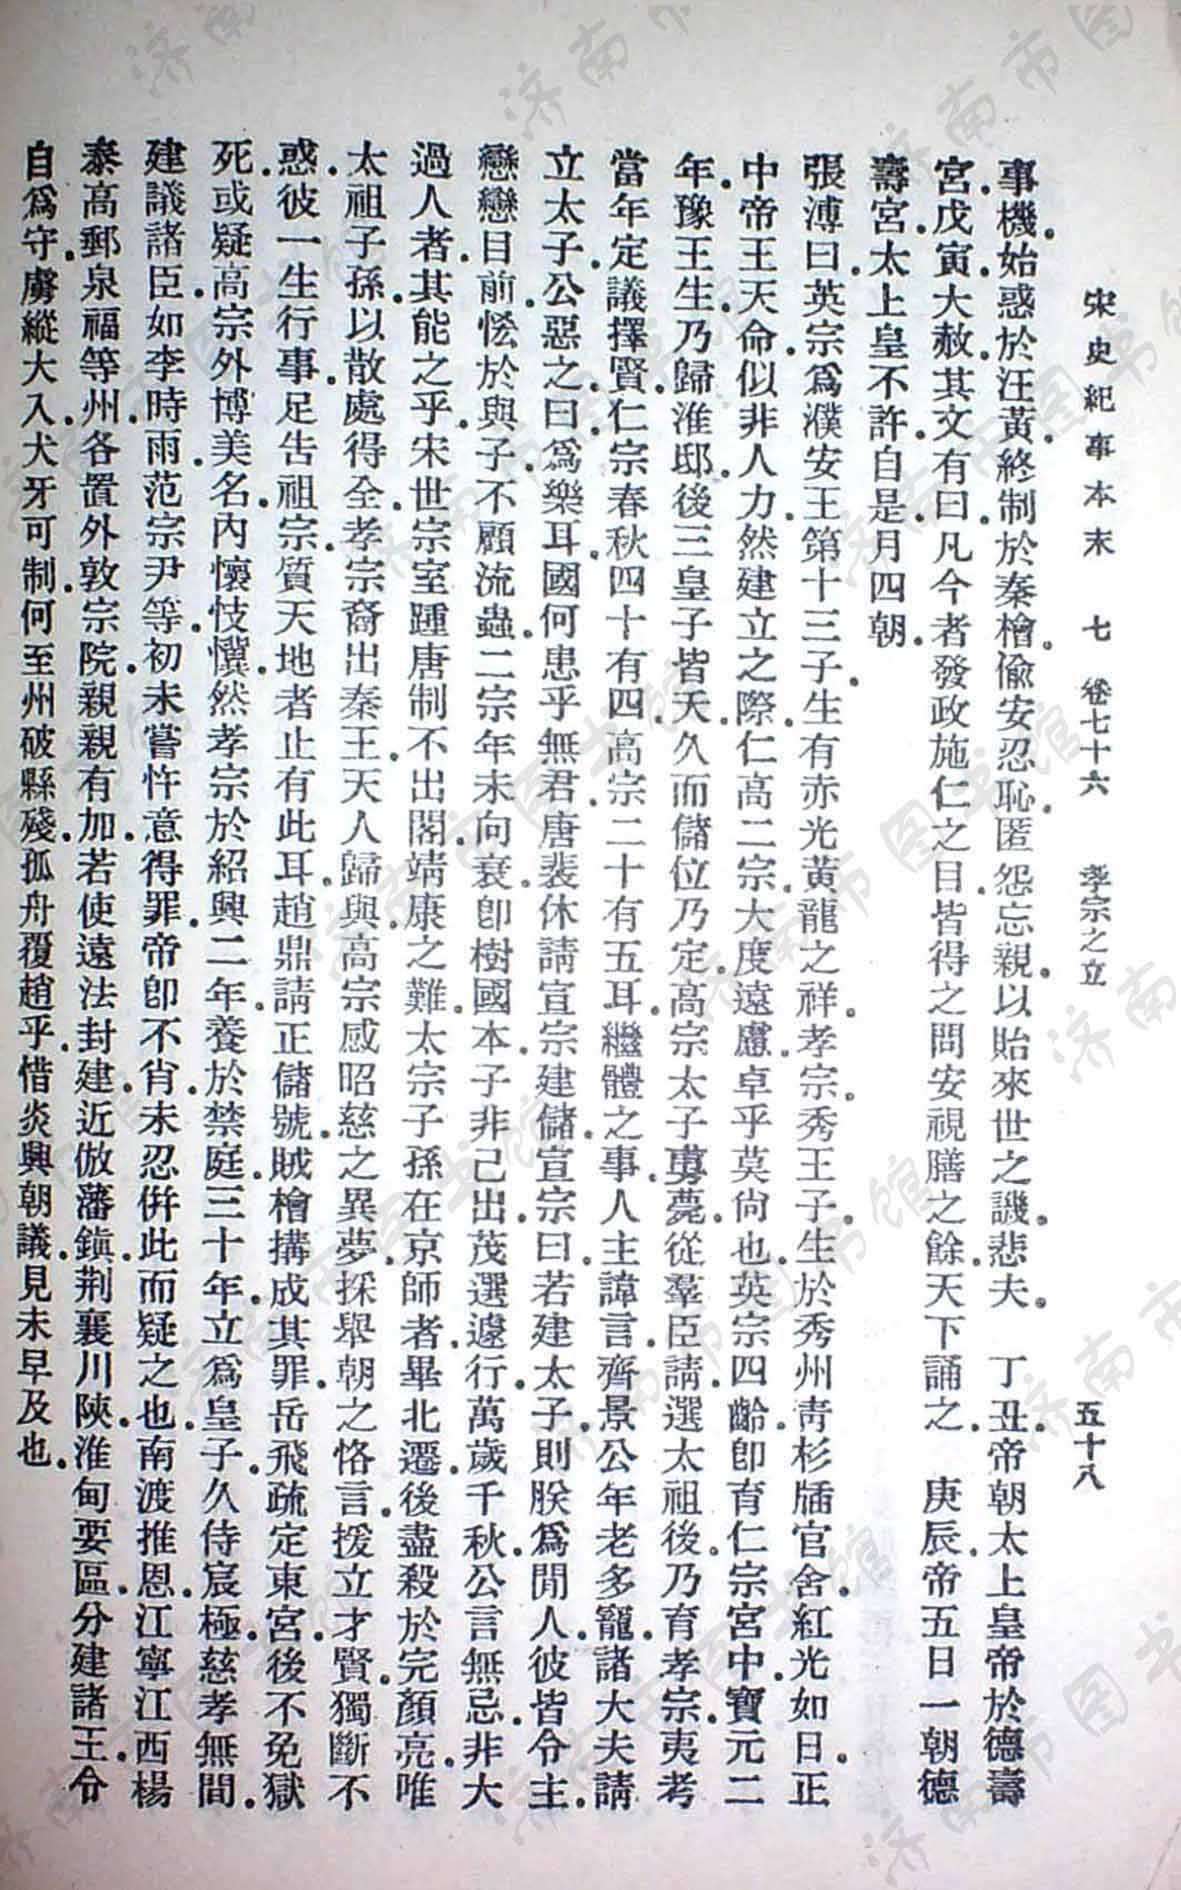 宋史紀事本末 七 卷七十六 孝宗之立 五十八
事機始惑於汪黃終制於秦檜偷安忍恥匿怨忘親以貽來世之譏悲夫 丁丑帝朝太上皇帝於德壽
宮戊寅大赦其文有曰凡今者發政施仁之目皆得之問安視膳之餘天下誦之 庚辰帝五日一朝德
壽宮太上皇不許自是月四朝
張溥曰英宗爲濮安王第十三子生有赤光黃龍之祥孝宗秀王子生於秀州靑杉牐官舍紅光如日正
中帝王天命似非人力然建立之際仁高二宗大度遠慮卓乎莫尙也英宗四齡卽育仁宗宮中寶元二
年豫王生乃歸淮邸後三皇子皆夭久而儲位乃定高宗太子旉薨從羣臣請選太祖後乃育孝宗夷考
當年定議擇賢仁宗春秋四十有四高宗二十有五耳繼體之事人主諱言齊景公年老多寵諸大夫請
立太子公惡之曰爲樂耳國何患乎無君唐裴休請宣宗建儲宣宗曰若建太子則朕爲閒人彼皆令主
戀戀目前恡於與子不顧流蟲二宗年未向衰卽樹國本子非己出茂選遽行萬歲千秋公言無忌非大
過人者其能之乎宋世宗室踵唐制不出閣靖康之難太宗子孫在京師者畢北遷後盡殺於完顏亮唯
太祖子孫以散處得全孝宗裔出秦王天人歸與高宗感昭慈之異夢採舉朝之恪言援立才賢獨斷不
惑彼一生行事足告祖宗質天地者止有此耳趙鼎請正儲號賊檜搆成其罪岳飛疏定東宮後不免獄
死或疑高宗外博美名內懷忮懻然孝宗於紹興二年養於禁庭三十年立爲皇子久侍宸極慈孝無間
建議諸臣如李時雨范宗尹等初未嘗忤意得罪帝卽不肖未忍倂此而疑之也南渡推恩江寧江西楊
泰高郵泉福等州各置外敦宗院親親有加若使遠法封建近倣藩鎭荆襄川陝淮甸要區分建諸王令
自爲守虜縱大入犬牙可制何至州破縣殘孤舟覆趙乎惜炎興朝議見未早及也
济南市图书馆